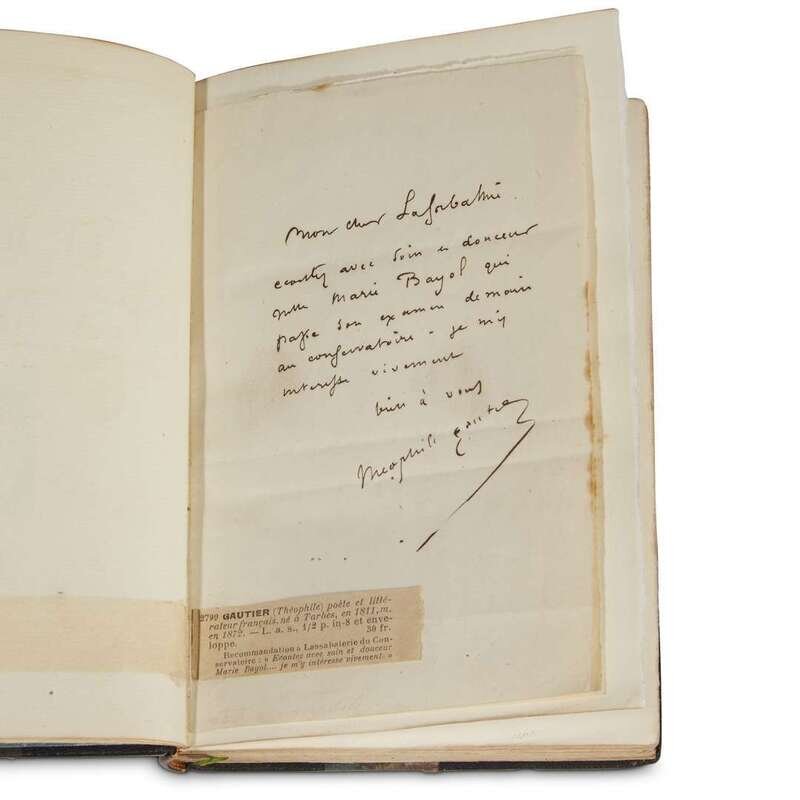 Mon cher Lasabathie
ecoutez avec soin et douceur
Mlle Marie Bayol qui
passe son examen demain
au conservatoire - je m'y
interesse vivement
bien à vous
Theophile Gautier
2790 GAUTIER (Théophile) poète et litté-
rateur français, né à Tarbes, en 1811, m.
en 1872. — L. a. s., 1/2 p. in-8 et enve-
loppe. 30 fr.
Recommandation à Lassabaterie du Con-
servatoire : « Ecoutez avec soin et douceur
Marie Bayol.... je m'y intéresse vivement. »